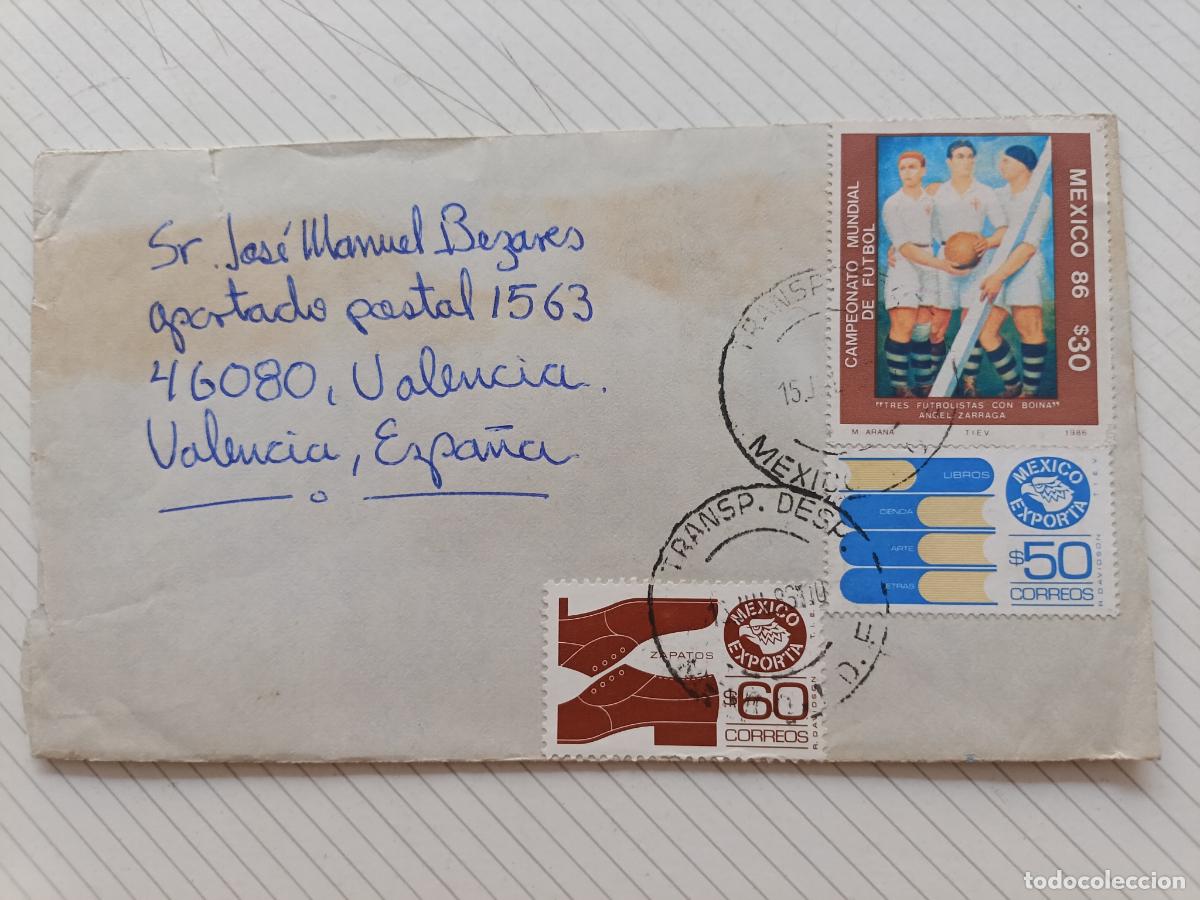 Sr. José Manuel Bezares
apartado postal 1563
46080, Valencia.
Valencia, España
CAMPEONATO MUNDIAL
DE FUTBOL
MEXICO 86 $30
"TRES FUTBOLISTAS CON BOINA"
ANGEL ZARRAGA
M. ARANA TIEV 1986
TRANSP.
15.J
MEXICO
LIBROS
CIENCIA
ARTE
LETRAS
MEXICO
EXPORTA
$50
CORREOS
TIEV
R. DAVIDSON
TRANSP. DESP.
D. F.
ZAPATOS
MEXICO
EXPORTA
$60
CORREOS
R. DAVIDSON
todocoleccion